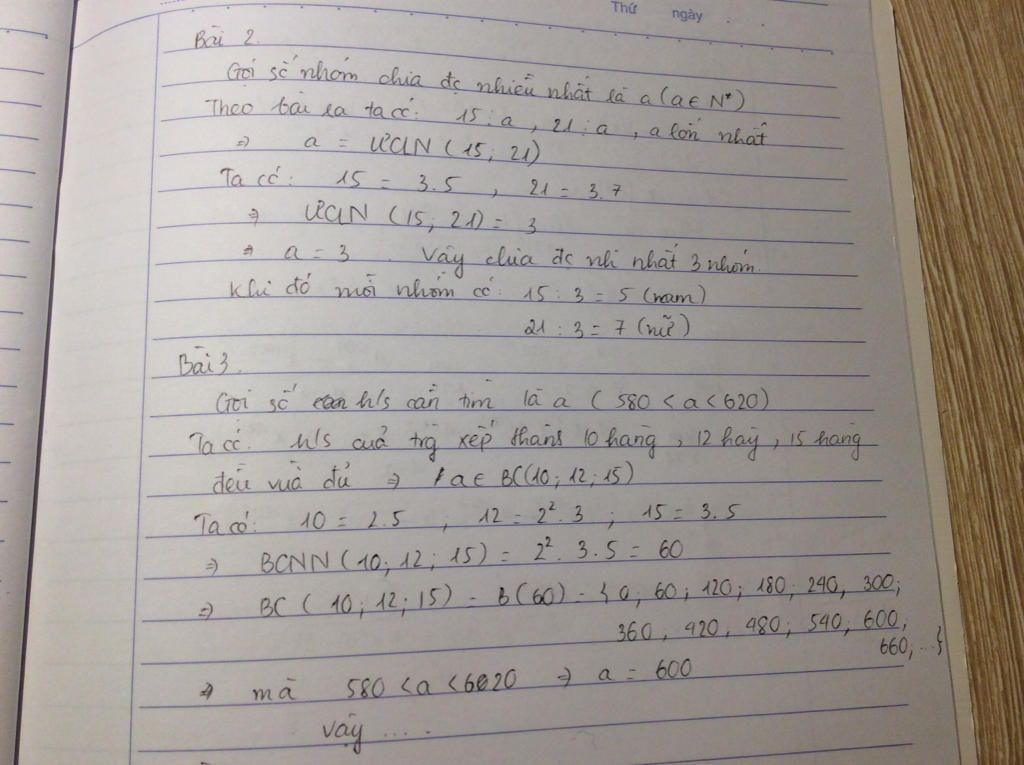 Thứ ngày
Bài 2.
Gọi số nhóm chia đc nhiều nhất là a (a ∈ N*)
Theo bài ra ta có: 15 ⋮ a, 21 ⋮ a, a lớn nhất
⇒ a = ƯCLN (15; 21)
Ta có: 15 = 3.5, 21 = 3.7
⇒ ƯCLN (15; 21) = 3
⇒ a = 3. Vậy chia đc nh nhất 3 nhóm.
Khi đó mỗi nhóm có: 15 : 3 = 5 (nam)
21 : 3 = 7 (nữ)
Bài 3.
Gọi số h/s cần tìm là a (580 < a < 620)
Ta có: h/s của trg xếp thành 10 hàng, 12 hàg, 15 hàng
đều vừa đủ ⇒ a ∈ BC(10; 12; 15)
Ta có: 10 = 2.5 ; 12 = 2². 3 ; 15 = 3.5
⇒ BCNN (10; 12; 15) = 2². 3.5 = 60
⇒ BC (10; 12; 15) = B(60) = {0; 60; 120; 180; 240; 300;
360, 420, 480; 540, 600,
660; ...}
⇒ mà 580 < a < 620 ⇒ a = 600
Vậy ....